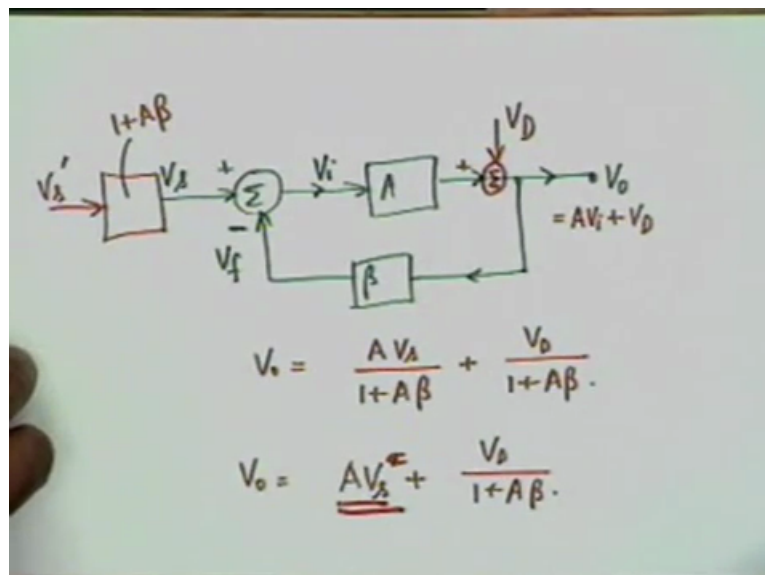 1+Aβ
Vs' Vs + Σ Vi A + Σ VD Vo
= AVi + VD
− Vf β
Vo = AVs/1+Aβ + VD/1+Aβ.
Vo = AVs' + VD/1+Aβ.